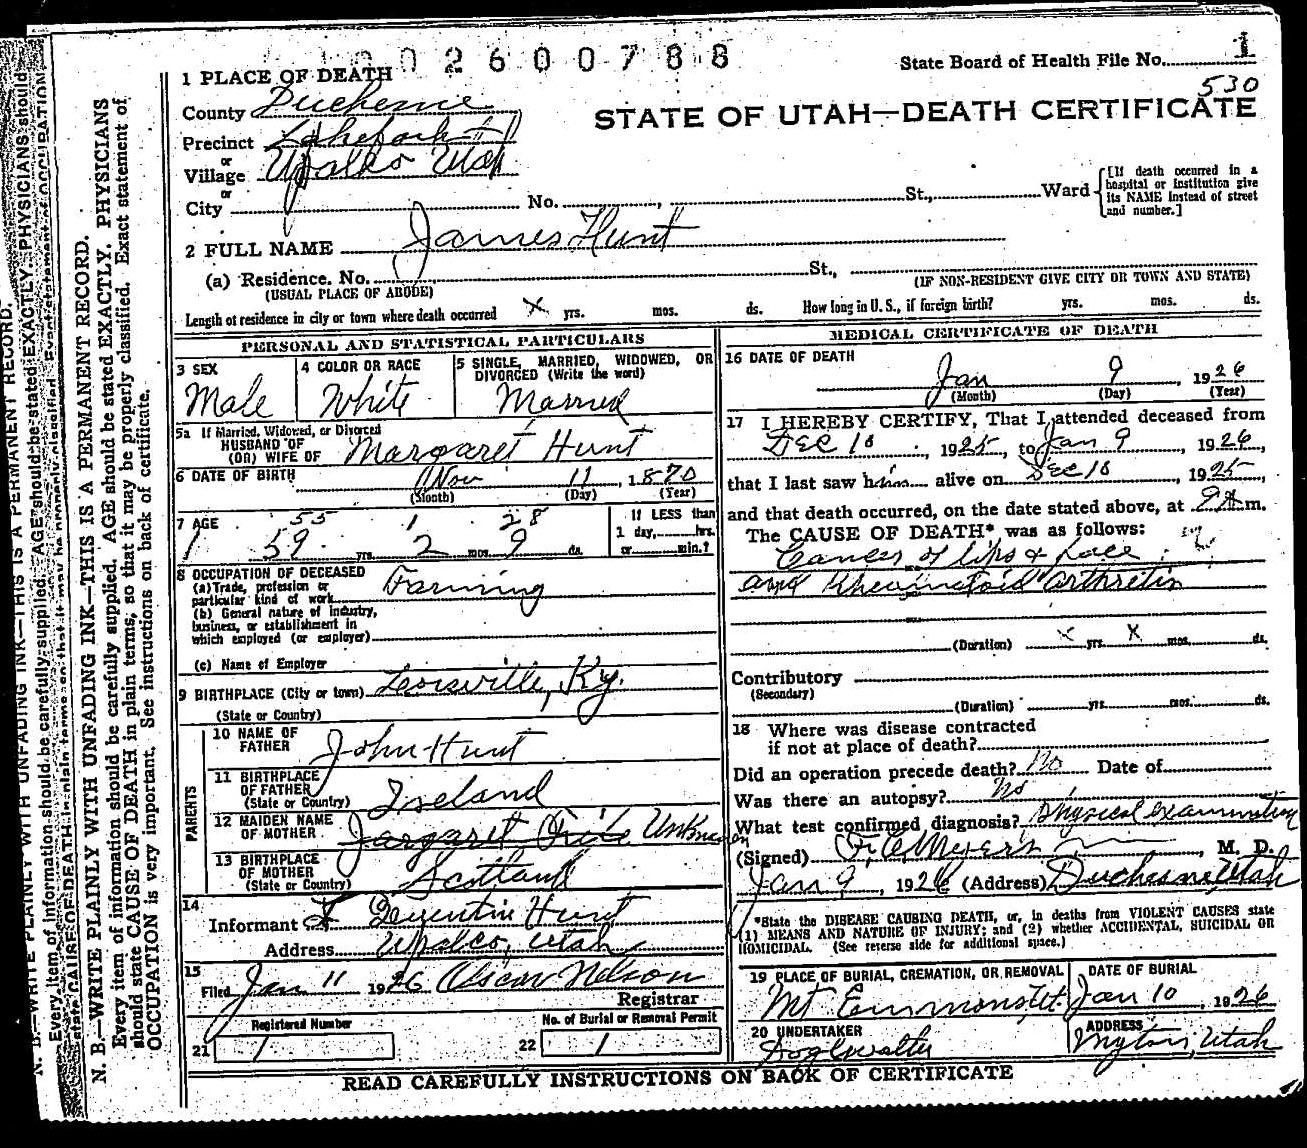 002600788
State Board of Health File No. 1
530
1 PLACE OF DEATH
STATE OF UTAH—DEATH CERTIFICATE
County Duchesne
Precinct Lakefork
or
Village Upalco Utah
or
City No. , St., Ward
[If death occurred in a hospital or institution give its NAME instead of street and number.]
2 FULL NAME James Hunt
(a) Residence. No. St.,
(USUAL PLACE OF ABODE) (IF NON-RESIDENT GIVE CITY OR TOWN AND STATE)
Length of residence in city or town where death occurred X yrs. mos. ds. How long in U. S., if foreign birth? yrs. mos. ds.
PERSONAL AND STATISTICAL PARTICULARS
3 SEX 4 COLOR OR RACE 5 SINGLE, MARRIED, WIDOWED, OR DIVORCED (Write the word)
Male White Married
5a If Married, Widowed, or Divorced
HUSBAND OF
(OR) WIFE OF Margaret Hunt
6 DATE OF BIRTH Nov 11, 1870
(Month) (Day) (Year)
7 AGE 55 1 28 If LESS than
59 yrs. 2 mos. 9 ds. 1 day, hrs. or min.?
8 OCCUPATION OF DECEASED
(a) Trade, profession or particular kind of work Farming
(b) General nature of industry, business, or establishment in which employed (or employer)
(c) Name of Employer
9 BIRTHPLACE (City or town) Louisville, Ky.
(State or Country)
PARENTS
10 NAME OF FATHER John Hunt
11 BIRTHPLACE OF FATHER (State or Country) Ireland
12 MAIDEN NAME OF MOTHER Unknown
13 BIRTHPLACE OF MOTHER (State or Country) Scotland
14
Informant Hunt
Address Upalco, Utah
15
Filed Jan 11 1926 Oscar Nelson
Registrar
Registered Number No. of Burial or Removal Permit
21 1 22 1
MEDICAL CERTIFICATE OF DEATH
16 DATE OF DEATH
Jan 9, 1926
(Month) (Day) (Year)
17 I HEREBY CERTIFY, That I attended deceased from
Dec 18, 1925, to Jan 9, 1926,
that I last saw him alive on Dec 18, 1925,
and that death occurred, on the date stated above, at 9 A m.
The CAUSE OF DEATH* was as follows:
Cancer of lips & face
and Rheumatoid arthretis
(Duration) X yrs. X mos. ds.
Contributory
(Secondary)
(Duration) yrs. mos. ds.
18 Where was disease contracted
if not at place of death?
Did an operation precede death? No Date of
Was there an autopsy? No
What test confirmed diagnosis? physical examination
(Signed) Myers, M. D.
Jan 9, 1926 (Address) Duchesne, Utah
*State the DISEASE CAUSING DEATH, or, in deaths from VIOLENT CAUSES state
(1) MEANS AND NATURE OF INJURY; and (2) whether ACCIDENTAL, SUICIDAL OR
HOMICIDAL. (See reverse side for additional space.)
19 PLACE OF BURIAL, CREMATION, OR REMOVAL DATE OF BURIAL
Mt Emmons, Ut. Jan 10, 1926
20 UNDERTAKER ADDRESS
Myton, Utah
READ CAREFULLY INSTRUCTIONS ON BACK OF CERTIFICATE
N. B.—WRITE PLAINLY WITH UNFADING INK—THIS IS A PERMANENT RECORD.
Every item of information should be carefully supplied. AGE should be stated EXACTLY. PHYSICIANS
should state CAUSE OF DEATH in plain terms, so that it may be properly classified. Exact statement of
OCCUPATION is very important. See instructions on back of certificate.